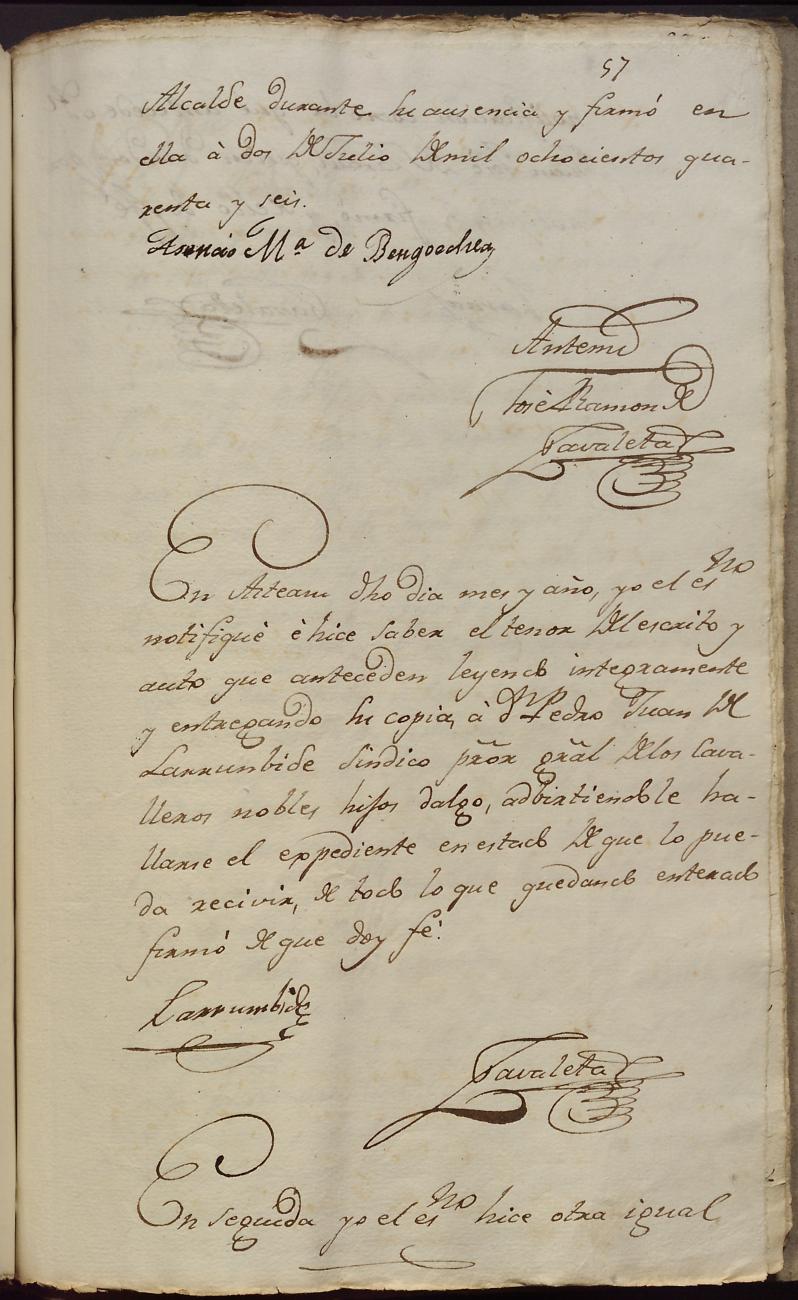 57
Alcalde durante su ausencia y firmó en
ella à dos de Julio de mil ochocientos qua-
renta y seis.
Asencio Mª de Bengoechea
Antemi
José Ramon de
Zavaleta
En Asteasu dho dia mes y año, yo el esno
notifiqué è hice saber el tenor del escrito y
auto que anteceden leyendo integramente
y entregando su copia, à Dn Pedro Juan de
Larrumbide Sindico prõr grãl de los Cava-
lleros nobles hijos dalgo, adbirtiendole ha-
llarse el expediente en estado de que lo pue-
da recivir, de todo lo que quedando enterado
firmó de que doy fé.
Larrumbide
Zavaleta
En seguida yo el esno hice otra igual